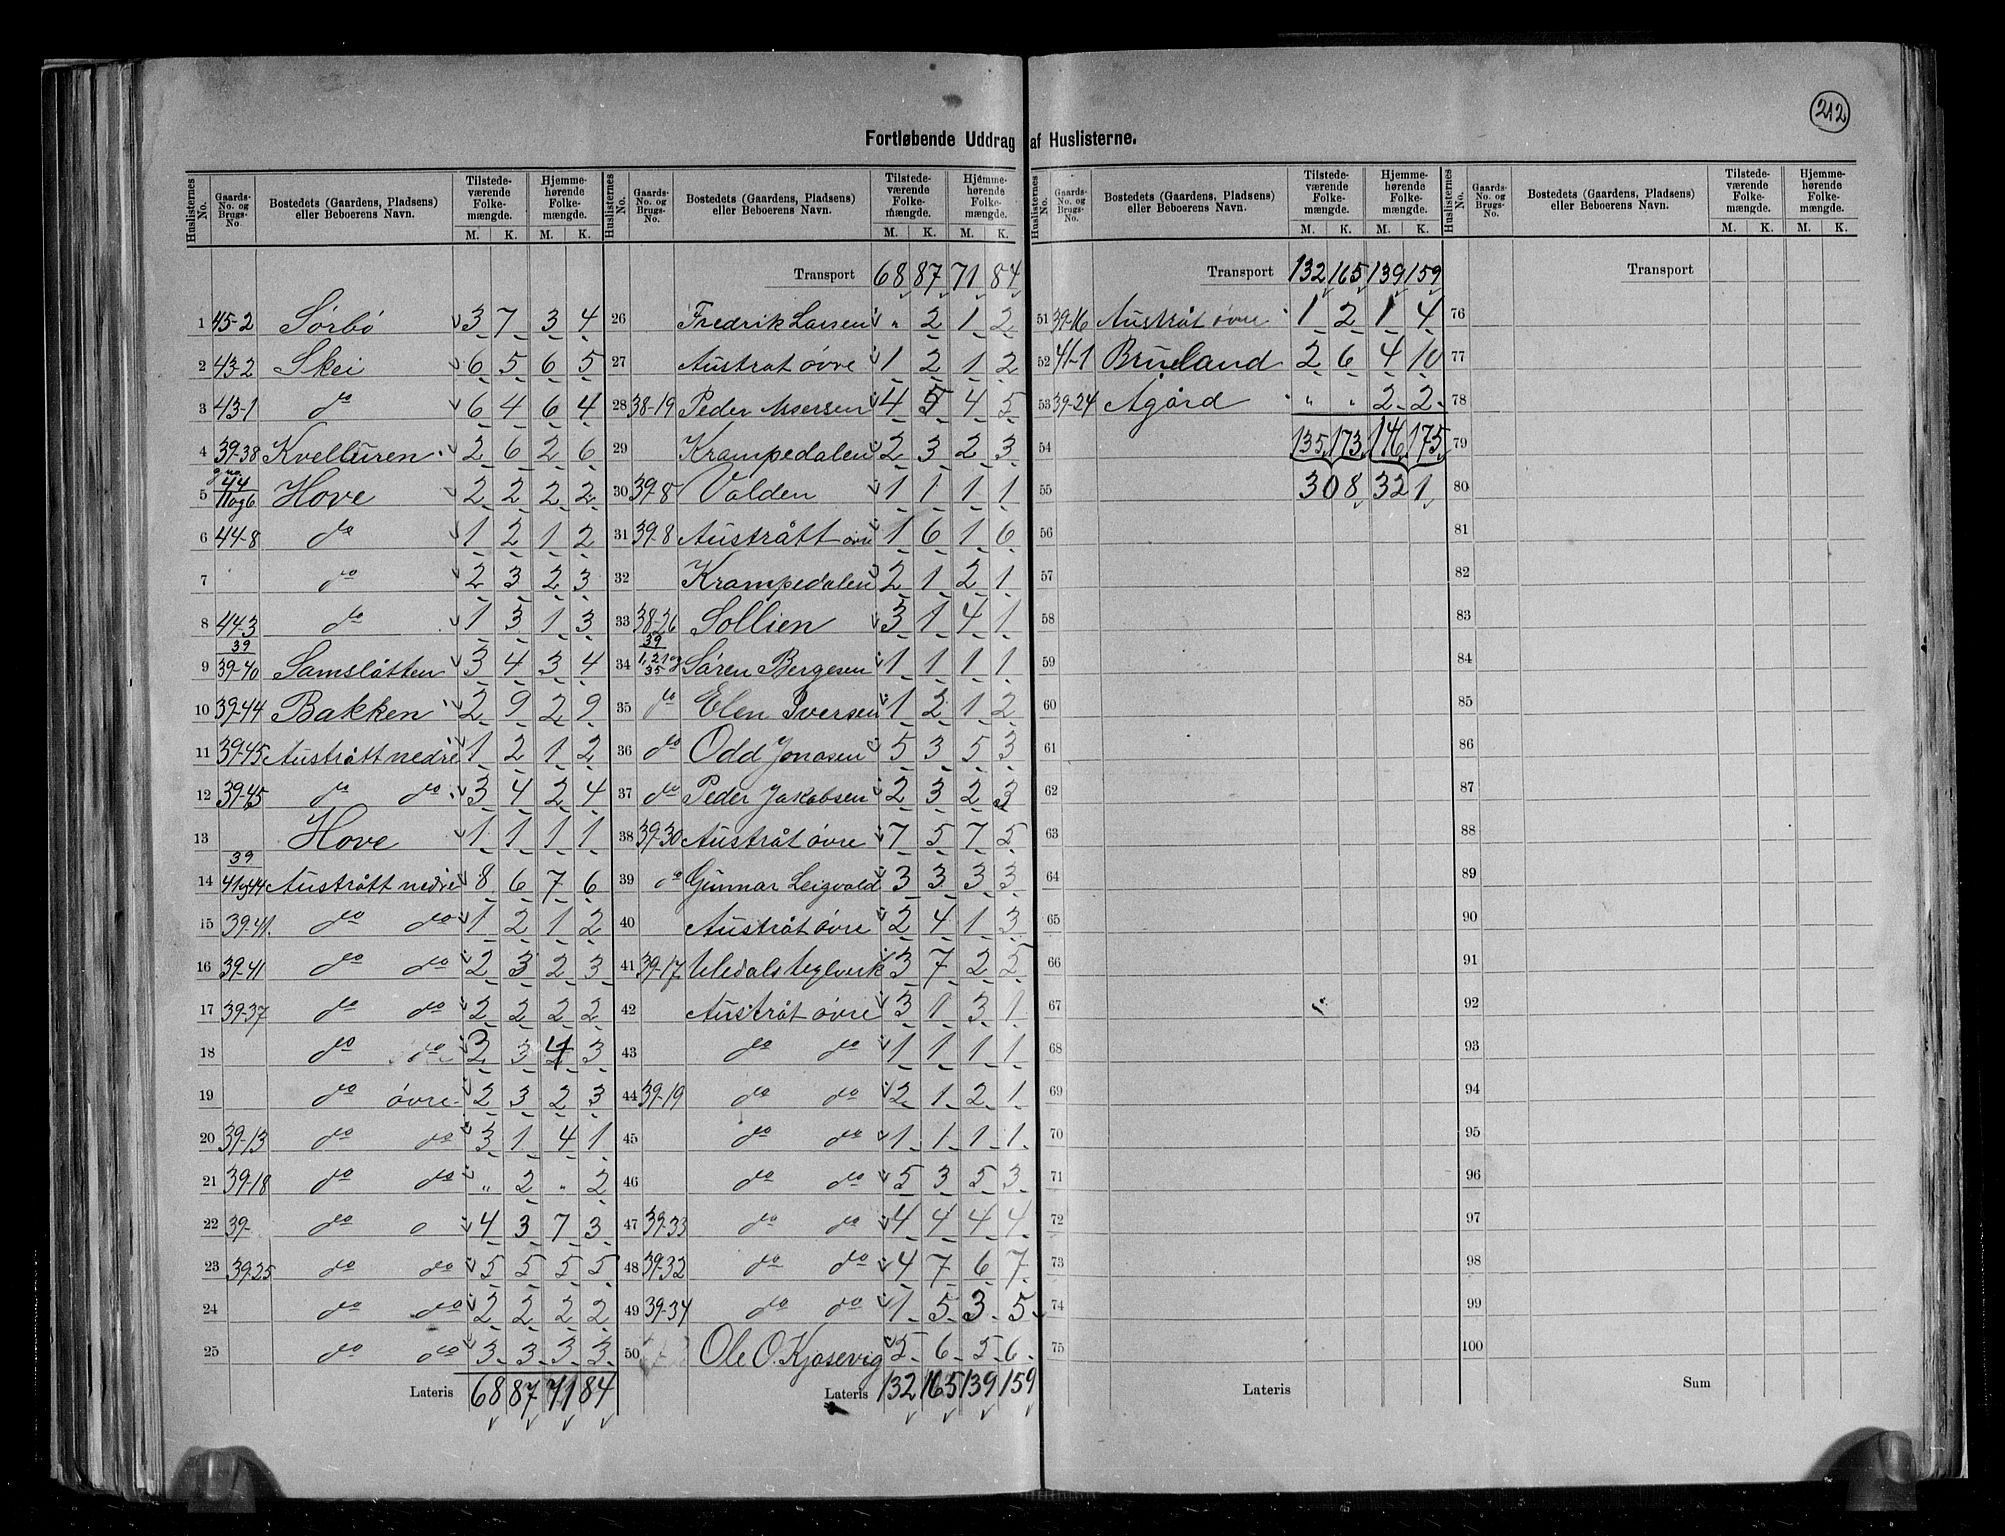 212
Fortløbende Uddrag af Huslisterne.
Huslisternes No. Gaards- No. og Brugs- No. Bostedets (Gaardens, Pladsens) eller Beboerens Navn. Tilstede- værende Folke- mængde. Hjemme- hørende Folke- mængde. M. K. M. K.
1 45-2 Sørbø 3 7 3 4
2 43-2 Skei 6 5 6 5
3 43-1 do 6 4 6 4
4 39-38 Kvelluren 2 6 2 6
5 g no 44 11og6 Hove 2 2 2 2
6 44-8 do 1 2 1 2
7 do 2 3 2 3
8 44-3 do 1 3 1 3
9 39 39-40 Samsløtten 3 4 3 4
10 39-44 Bakken 2 9 2 9
11 39-45 Austrått nedre 1 2 1 2
12 39-45 do do 3 4 2 4
13 Hove 1 1 1 1
14 39 41og44 Austrått nedre 8 6 7 6
15 39-41. do do 1 2 1 2
16 39-41 do do 2 3 2 3
17 39-37 do do 2 2 2 2
18 do do 3 4 3
19 do övre 2 3 2 3
20 39-13 do do 3 1 4 1
21 39-18 do do " 2 " 2
22 39- do o 4 3 7 3
23 39-25 do do 5 5 5 5
24 do do 2 2 2 2
25 do do 3 3 3 3
Lateris 68 87 71 84
Huslisternes No. Gaards- No. og Brugs- No. Bostedets (Gaardens, Pladsens) eller Beboerens Navn. Tilstede- værende Folke- mængde. Hjemme- hørende Folke- mængde. M. K. M. K.
Transport 68 87 71 84
26 Fredrik Larsen " 2 1 2
27 Austrat övre 1 2 1 2
28 38-19 Peder 4 5 4 5
29 Krampedalen 2 3 2 3
30 39-8 Volden 1 1 1 1
31 39-8 Austrått övre 1 6 1 6
32 Krampedalen 2 1 2 1
33 38-26 Sollien 3 1 4 1
34 39 1, 21 og 35 Søren Bergesen 1 1 1 1
35 do Elen Iversen 1 2 1 2
36 do Odd Jonasen 5 3 5 3
37 do Peder Jakobsen 2 3 2 3
38 39-30 Austråt övre 7 5 7 5
39 do Gunnar Leigvold 3 3 3 3
40 Austråt övre 2 4 1 3
41 39-17 teglverk 3 7 2 5
42 Austråt övre 3 1 3 1
43 do do 1 1 1 1
44 39-19 do do 2 1 2 1
45 do do 1 1 1 1
46 do do 5 3 5 3
47 39-33 do do 4 4 4 4
48 39-32 do do 4 7 6 7
49 39-34 do do 1 5 3 5
50 Ole O. Kjosevig 5 6 5 6
Lateris 132 165 139 159
Huslisternes No. Gaards- No. og Brugs- No. Bostedets (Gaardens, Pladsens) eller Beboerens Navn. Tilstede- værende Folke- mængde. Hjemme- hørende Folke- mængde. M. K. M. K.
Transport 132 165 139 159
51 39-16 Austråt övre 1 2 1 4
52 41-1 Brueland 2 6 4 10
53 39-24 Agård " " 2 2
54 135 173 146 175
55 308 321
56
57
58
59
60
61
62
63
64
65
66
67
68
69
70
71
72
73
74
75
Lateris
Huslisternes No. Gaards- No. og Brugs- No. Bostedets (Gaardens, Pladsens) eller Beboerens Navn. Tilstede- værende Folke- mængde. Hjemme- hørende Folke- mængde. M. K. M. K.
Transport
76
77
78
79
80
81
82
83
84
85
86
87
88
89
90
91
92
93
94
95
96
97
98
99
100
Sum